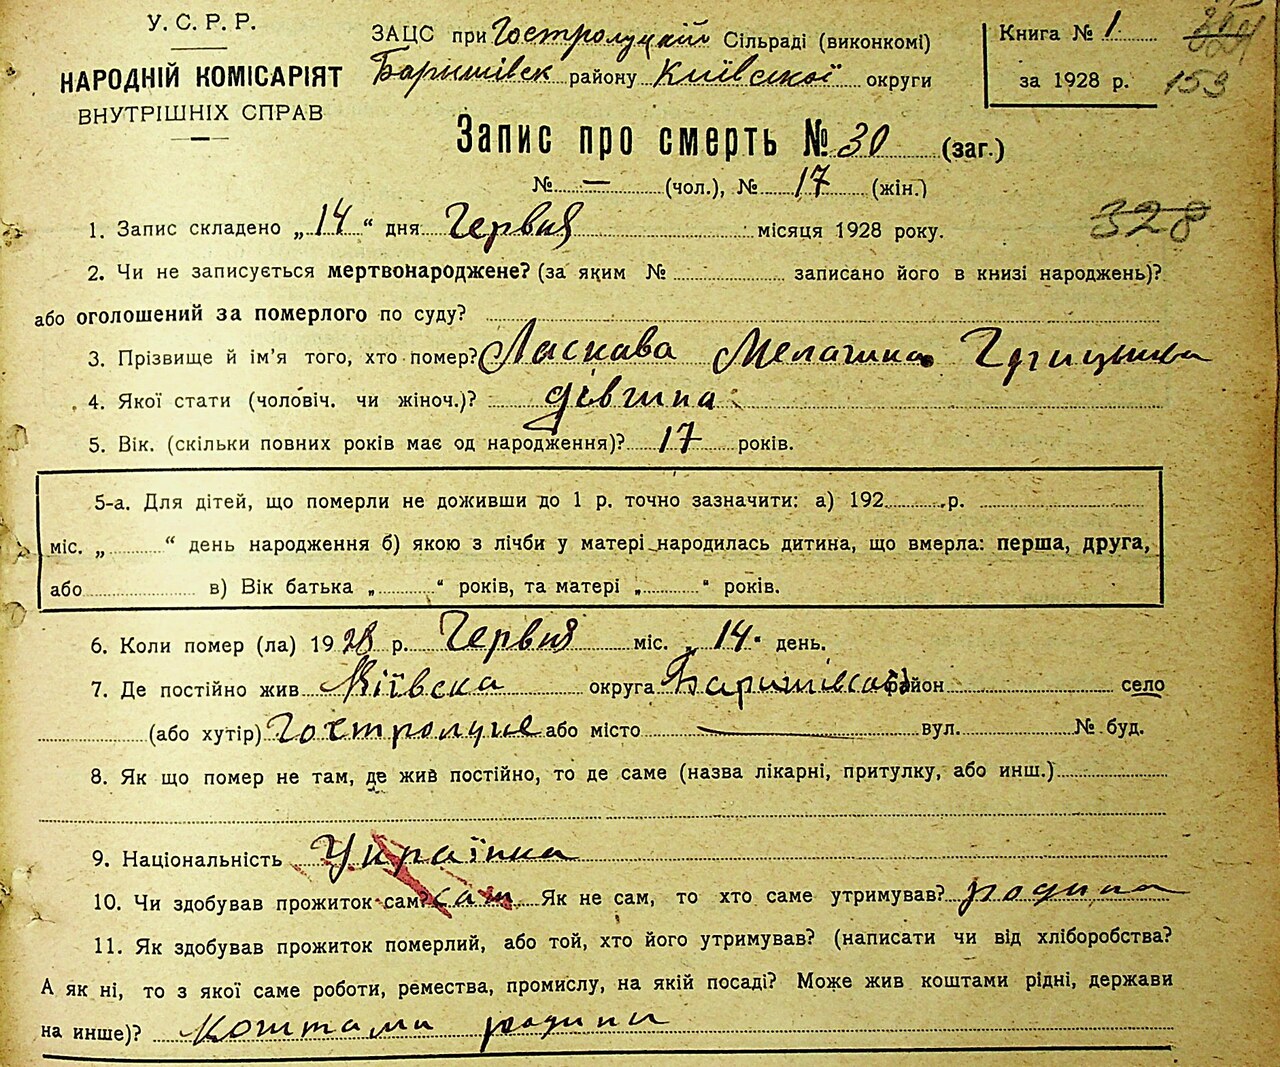 У. С. Р. Р.
НАРОДНІЙ КОМІСАРІЯТ
ВНУТРІШНІХ СПРАВ
ЗАЦС при Гостролуцкій Сільраді (виконкомі)
Баришівск району Київської округи
Книга № 1
за 1928 р. 153
Запис про смерть № 30 (заг.)
№ — (чол.), № 17 (жін.)
328
1. Запис складено „ 14 “ дня Червня місяця 1928 року.
2. Чи не записується мертвонароджене? (за яким № записано його в книзі народжень)?
або оголошений за померлого по суду?
3. Прізвище й ім'я того, хто помер? Ласкава Мелашка Грицькова
4. Якої стати (чоловіч. чи жіноч.)? дівчина
5. Вік. (скільки повних років має од народження)? 17 років.
5-а. Для дітей, що померли не доживши до 1 р. точно зазначити: а) 192 р.
міс. „ “ день народження б) якою з лічби у матері народилась дитина, що вмерла: перша, друга,
або в) Вік батька „ “ років, та матері „ “ років.
6. Коли помер (ла) 1928 р. Червня міс. „ 14 день.
7. Де постійно жив Київска округа Баришівский район село
(або хутір) Гостролуче або місто — вул. № буд.
8. Як що помер не там, де жив постійно, то де саме (назва лікарні, притулку, або инш.)
9. Національність Українка
10. Чи здобував прожиток сам? сам Як не сам, то хто саме утримував? родина
11. Як здобував прожиток померлий, або той, хто його утримував? (написати чи від хліборобства?
А як ні, то з якої саме роботи, ремества, промислу, на якій посаді? Може жив коштами рідні, держави
на инше)? Коштами родини